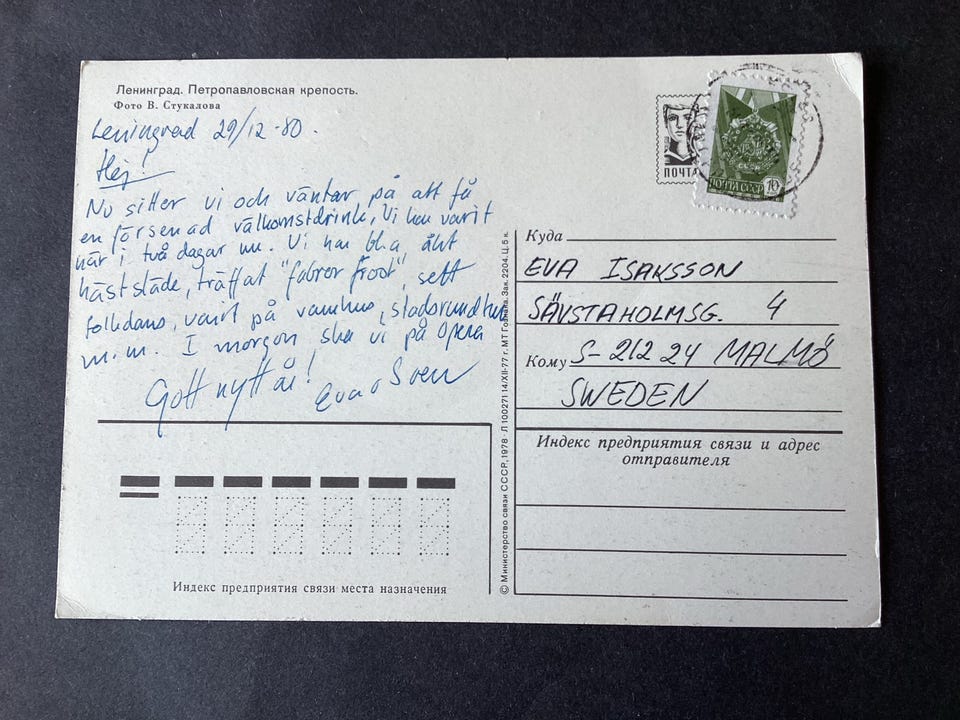 Ленинград. Петропавловская крепость.
Фото В. Стукалова
Leningrad 29/12-80.
Hej!
Nu sitter vi och väntar på att få
en försenad välkomstdrink. Vi har varit
här i två dagar nu. Vi har bl.a. åkt
hästsläde, träffat "farbror frost", sett
folkdans, varit på varuhus, stadsrundtur
m.m. I morgon ska vi på opera
Gott nytt år!
Eva o Sven
ПОЧТА
ПОЧТА СССР 10
Куда
EVA ISAKSSON
SÄVSTAHOLMSG. 4
Кому S-212 24 MALMÖ
SWEDEN
Индекс предприятия связи и адрес
отправителя
Индекс предприятия связи места назначения
© Министерство связи СССР, 1978 · Л 10027114/XII-77 г. МТ Гознака. Зак. 2204. Ц. 5 к.